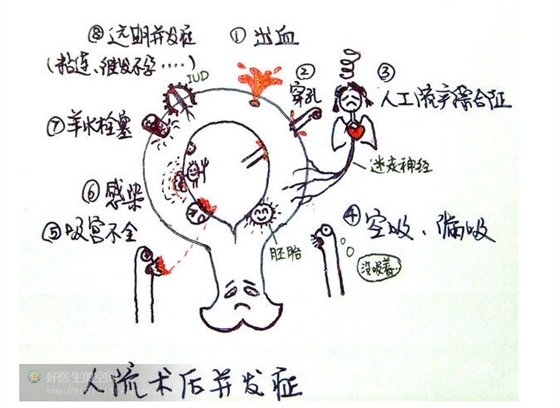 ⑧远期并发症
(粘连、继发不孕……)
IUD
①出血
②
穿孔
③
人工流产综合征
迷走神经
⑦羊水栓塞
⑥感染
⑤吸宫不全
④
空吸、漏吸
没吸着…
胚胎
人流术后并发症
好医生的空间